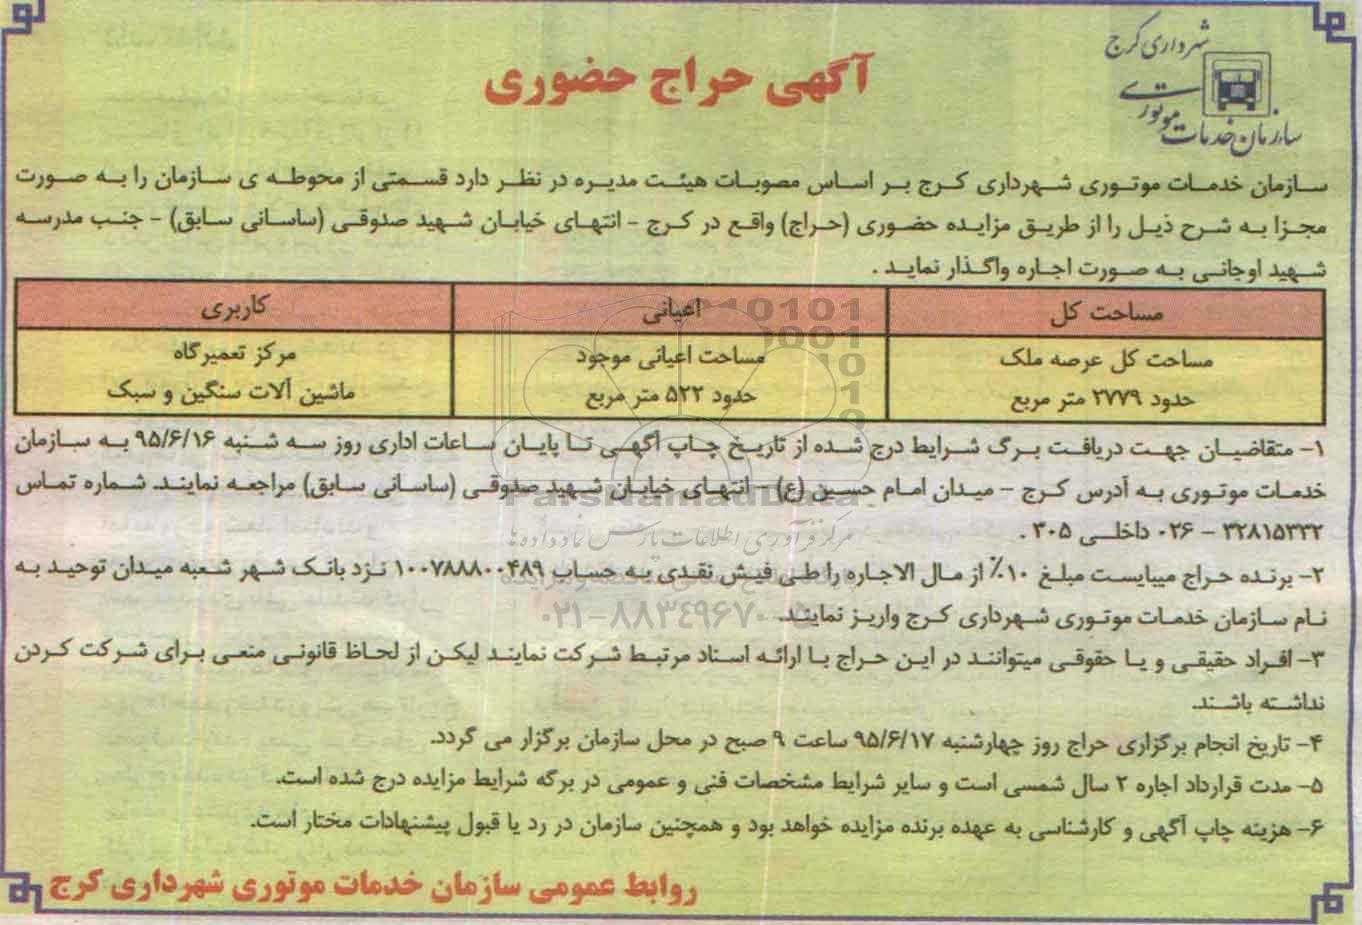 شهرداری کرج
سازمان خدمات موتوری
آگهی حراج حضوری
سازمان خدمات موتوری شهرداری کرج بر اساس مصوبات هیئت مدیره در نظر دارد قسمتی از محوطه ی سازمان را به صورت
مجزا به شرح ذیل را از طریق مزایده حضوری (حراج) واقع در کرج - انتهای خیابان شهید صدوقی (ساسانی سابق) - جنب مدرسه
شهید اوجانی به صورت اجاره واگذار نماید .
مساحت کل	اعیانی	کاربری
مساحت کل عرصه ملک	مساحت اعیانی موجود	مرکز تعمیرگاه
حدود ۲۷۷۹ متر مربع	حدود ۵۲۲ متر مربع	ماشین آلات سنگین و سبک
۱- متقاضیان جهت دریافت برگ شرایط درج شده از تاریخ چاپ آگهی تا پایان ساعات اداری روز سه شنبه ۹۵/۶/۱۶ به سازمان
خدمات موتوری به آدرس کرج - میدان امام حسین (ع) - انتهای خیابان شهید صدوقی (ساسانی سابق) مراجعه نمایند. شماره تماس
۳۲۸۱۵۳۳۲ - ۰۲۶ داخلی ۳۰۵ .
۲- برنده حراج میبایست مبلغ ۱۰٪ از مال الاجاره را طی فیش نقدی به حساب ۱۰۰۷۸۸۸۰۰۴۸۹ نزد بانک شهر شعبه میدان توحید به
نام سازمان خدمات موتوری شهرداری کرج واریز نمایند.
۳- افراد حقیقی و یا حقوقی میتوانند در این حراج با ارائه اسناد مرتبط شرکت نمایند لیکن از لحاظ قانونی منعی برای شرکت کردن
نداشته باشند.
۴- تاریخ انجام برگزاری حراج روز چهارشنبه ۹۵/۶/۱۷ ساعت ۹ صبح در محل سازمان برگزار می گردد.
۵- مدت قرارداد اجاره ۲ سال شمسی است و سایر شرایط مشخصات فنی و عمومی در برگه شرایط مزایده درج شده است.
۶- هزینه چاپ آگهی و کارشناسی به عهده برنده مزایده خواهد بود و همچنین سازمان در رد یا قبول پیشنهادات مختار است.
روابط عمومی سازمان خدمات موتوری شهرداری کرج
ParsNamadData
مرکز فرآوری اطلاعات پارس نماد داده ها
۰۲۱-۸۸۳۴۹۶۷۰